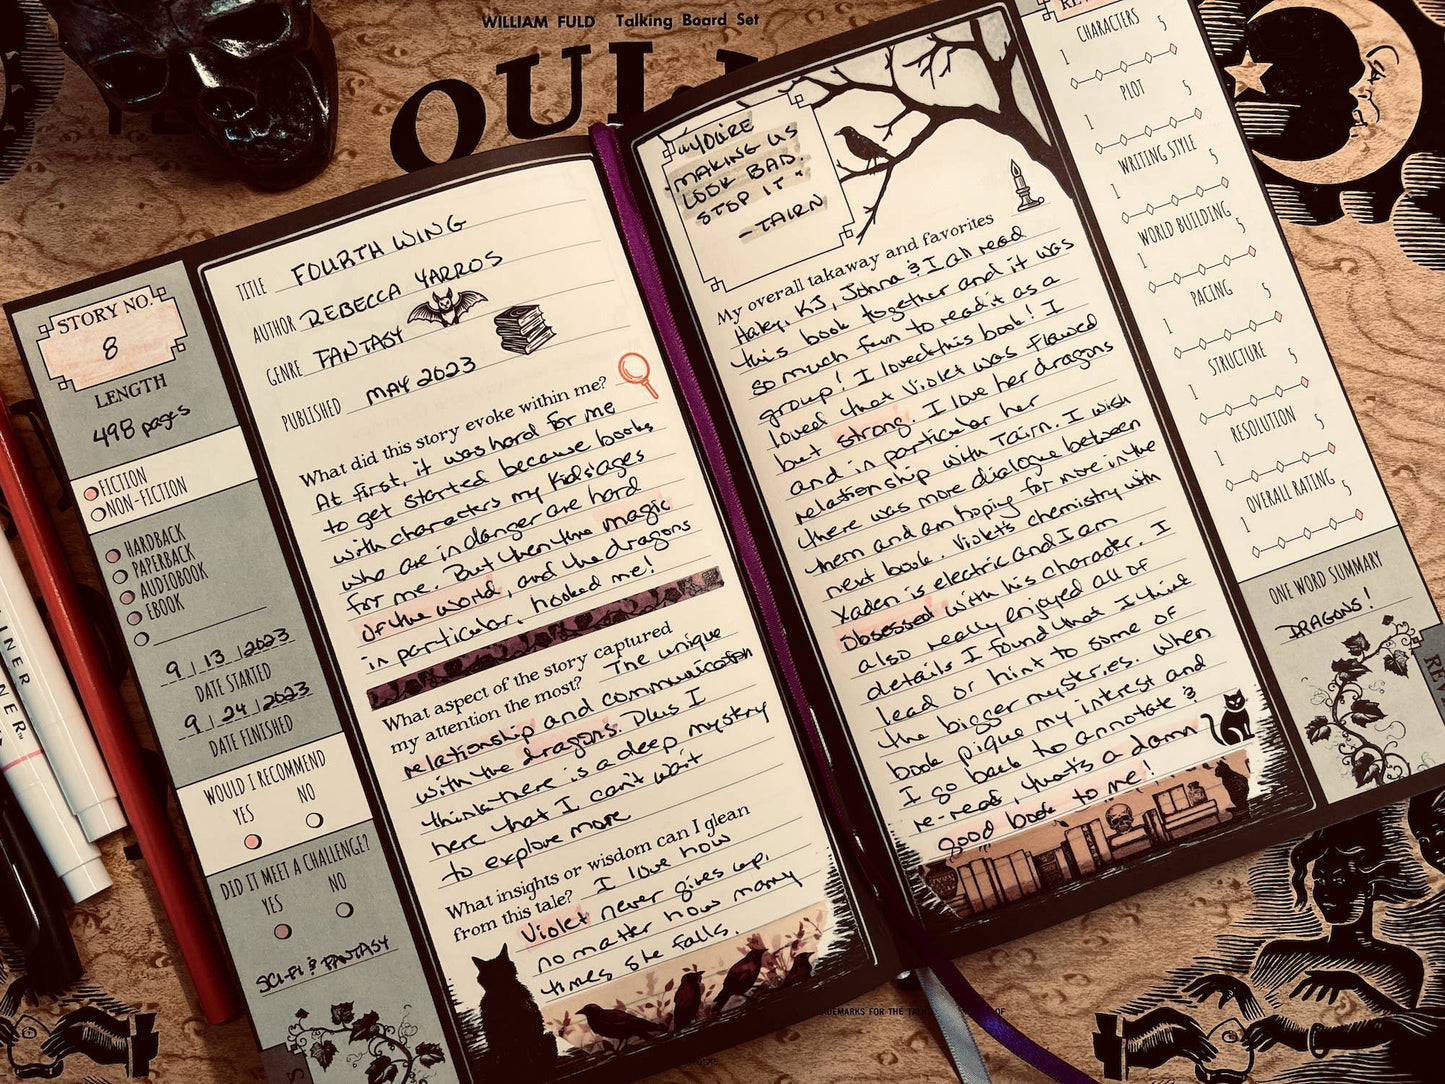 WILLIAM FULD Talking Board Set
OUIJ
STORY NO.
8
LENGTH
498 pages
FICTION
NON-FICTION
HARDBACK
PAPERBACK
AUDIOBOOK
EBOOK
9 | 13 | 2023
DATE STARTED
9 | 24 | 2023
DATE FINISHED
WOULD I RECOMMEND
YES NO
DID IT MEET A CHALLENGE?
YES NO
SCI-FI & FANTASY
TITLE FOURTH WING
AUTHOR REBECCA YARROS
GENRE FANTASY
PUBLISHED MAY 2023
What did this story evoke within me?
At first, it was hard for me
to get started because books
with characters my kids' ages
who are in danger are hard
for me. But then the magic
of the world, and the dragons
in particular, hooked me!
What aspect of the story captured
my attention the most? The unique
relationship and communication
with the dragons. Plus I
think there is a deep mystery
here that I can't wait
to explore more
What insights or wisdom can I glean
from this tale? I love how
Violet never gives up,
no matter how many
times she falls.
"YOU'RE
MAKING US
LOOK BAD.
STOP IT"
-TAIRN
My overall takaway and favorites
Haley, KJ, & I all read
this book together and it was
so much fun to read it as a
group! I loved this book! I
loved that Violet was flawed
but strong. I love her dragons
and in particular her
relationship with Tairn. I wish
there was more dialogue between
them and am hoping for more in the
next book. Violet's chemistry with
Xaden is electric and I am
obsessed with his character. I
also really enjoyed all of
details I found that I think
lead or hint to some of
the bigger mysteries. When
book pique my interest and
I go back to annotate &
re-read, that's a damn
good book to me!
CHARACTERS
1 5
PLOT
1 5
WRITING STYLE
1 5
WORLD BUILDING
1 5
PACING
1 5
STRUCTURE
1 5
RESOLUTION
1 5
OVERALL RATING
1 5
ONE WORD SUMMARY
DRAGONS!